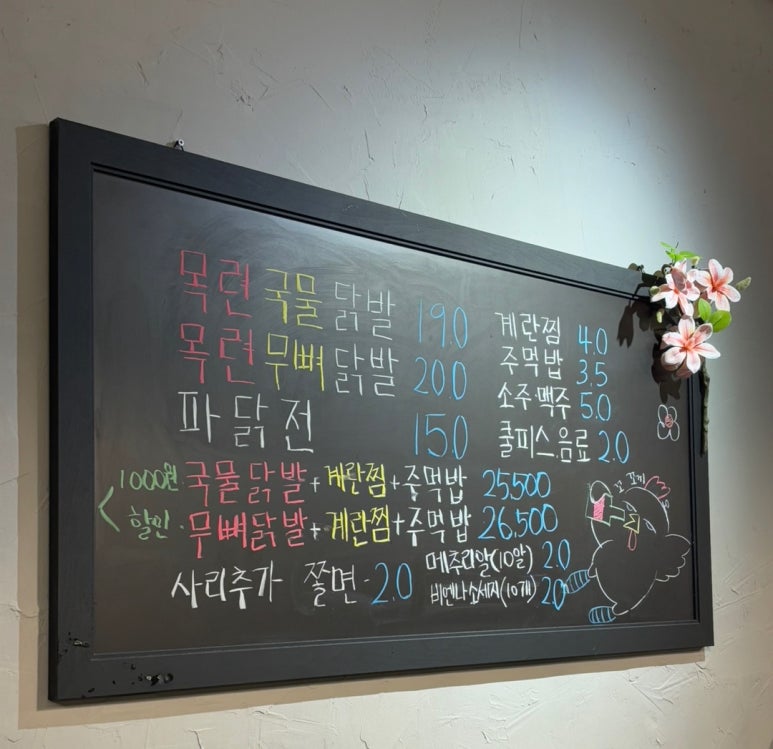 목련 국물 닭발 19.0
목련 무뼈 닭발 20.0
파 닭 전 15.0
계란찜 4.0
주먹밥 3.5
소주.맥주 5.0
쿨피스.음료 2.0
1000원 할인
국물닭발+계란찜+주먹밥 25,500
무뼈닭발+계란찜+주먹밥 26,500
사리추가 쫄면-2.0
메추리알(10알) 2.0
비엔나소세지(10개) 2.0